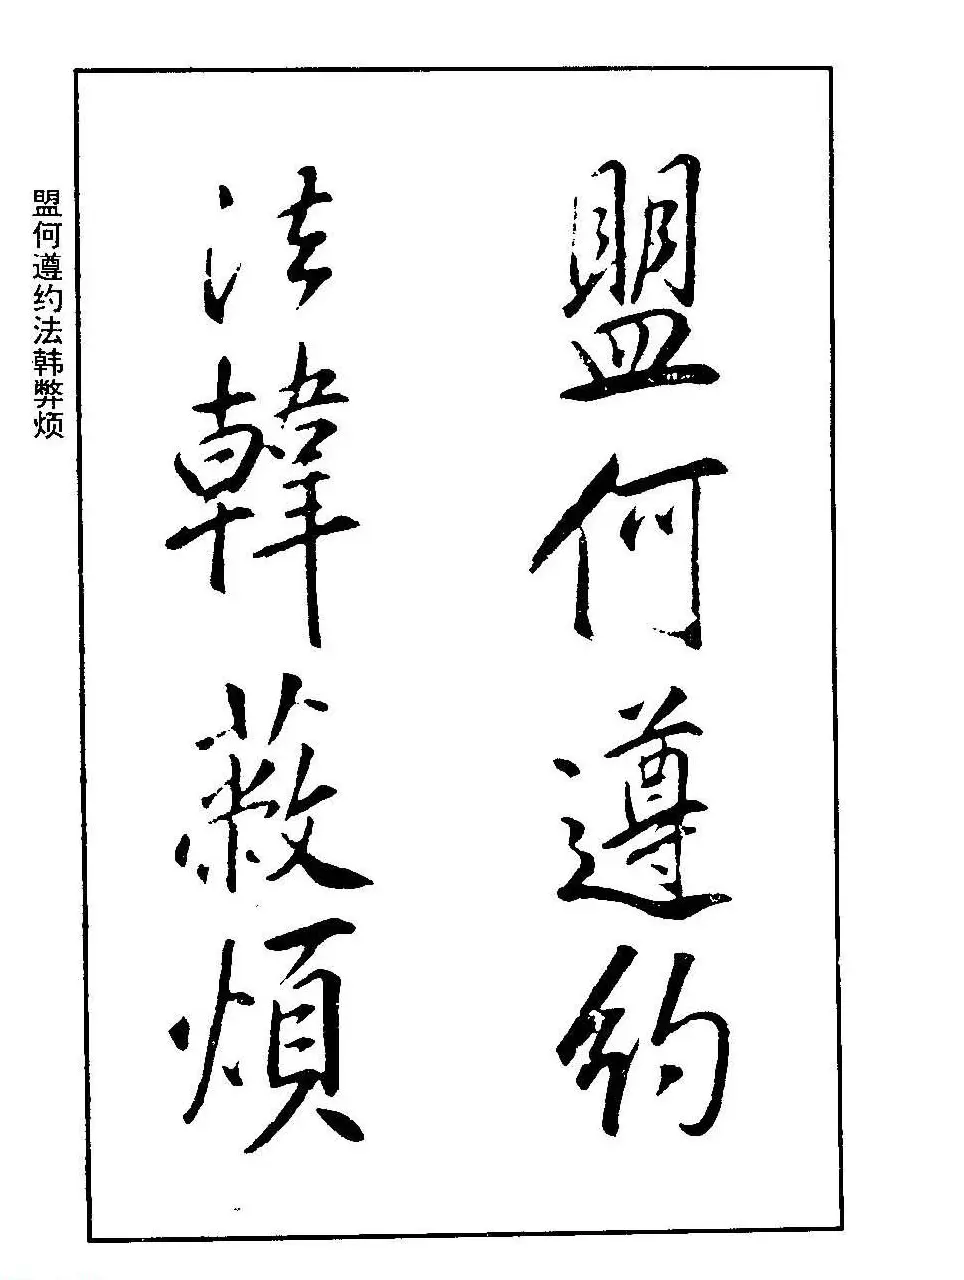 盟何遵約
法韓蔽煩
盟何遵约法韩弊烦